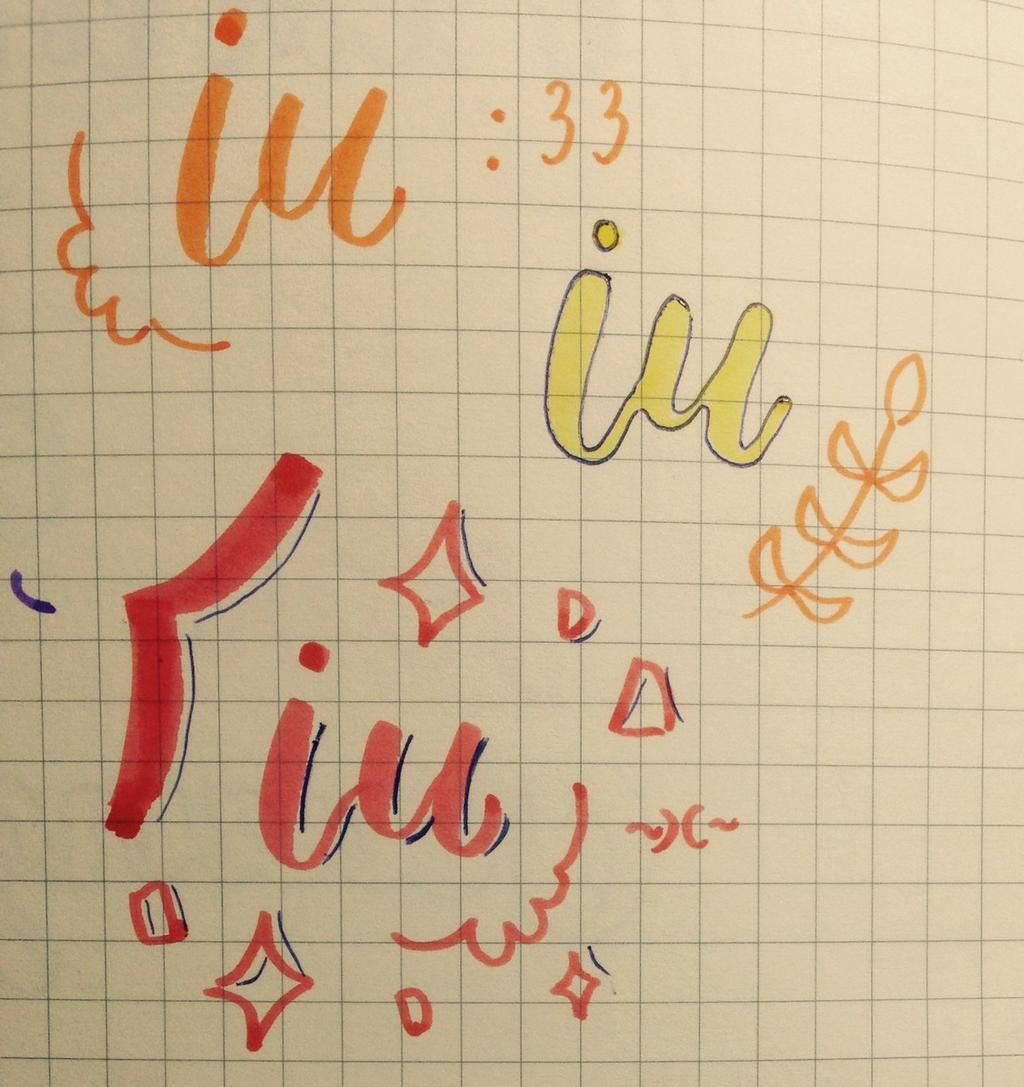 iu :33
iu
iu